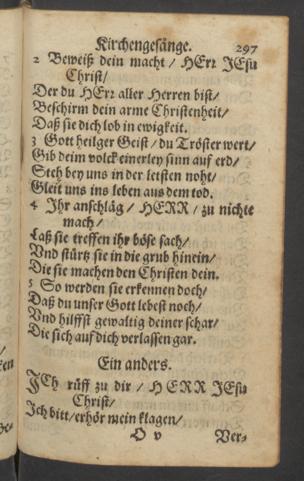 Kirchengesänge. 297
2 Beweiß dein macht / HErr JEsu
Christ/
Der du HErr aller Herren bist/
Beschirm dein arme Christenheit/
Daß sie dich lob in ewigkeit.
3 Gott heilger Geist / du Tröster wert/
Gib deim volck einerley sinn auf erd/
Steh bey uns in der letsten noht/
Gleit uns ins leben aus dem tod.
4 Ihr anschläg / HERR / zu nichte
mach/
Laß sie treffen ihr böse sach/
Vnd stürtz sie in die grub hinein/
Die sie machen den Christen dein.
5 So werden sie erkennen doch/
Daß du unser Gott lebest noch/
Vnd hilffst gewaltig deiner schar/
Die sich auf dich verlassen gar.
Ein anders.
ICh rüff zu dir / HERR JEsu
Christ/
Ich bitt/ erhör mein klagen/
O v Ver-